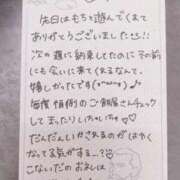 先日はもちろん遊んでくれて
ありがとうございました!!
次の週に納車してたのにその前
にも会いに来てくれるなんて
嬉しかったです(
毎度恒例のご部屋さんチェック
して まったりしちゃいました♡
だんだんいかされるのがはやく
なってる気がする…?
こないだのお礼は